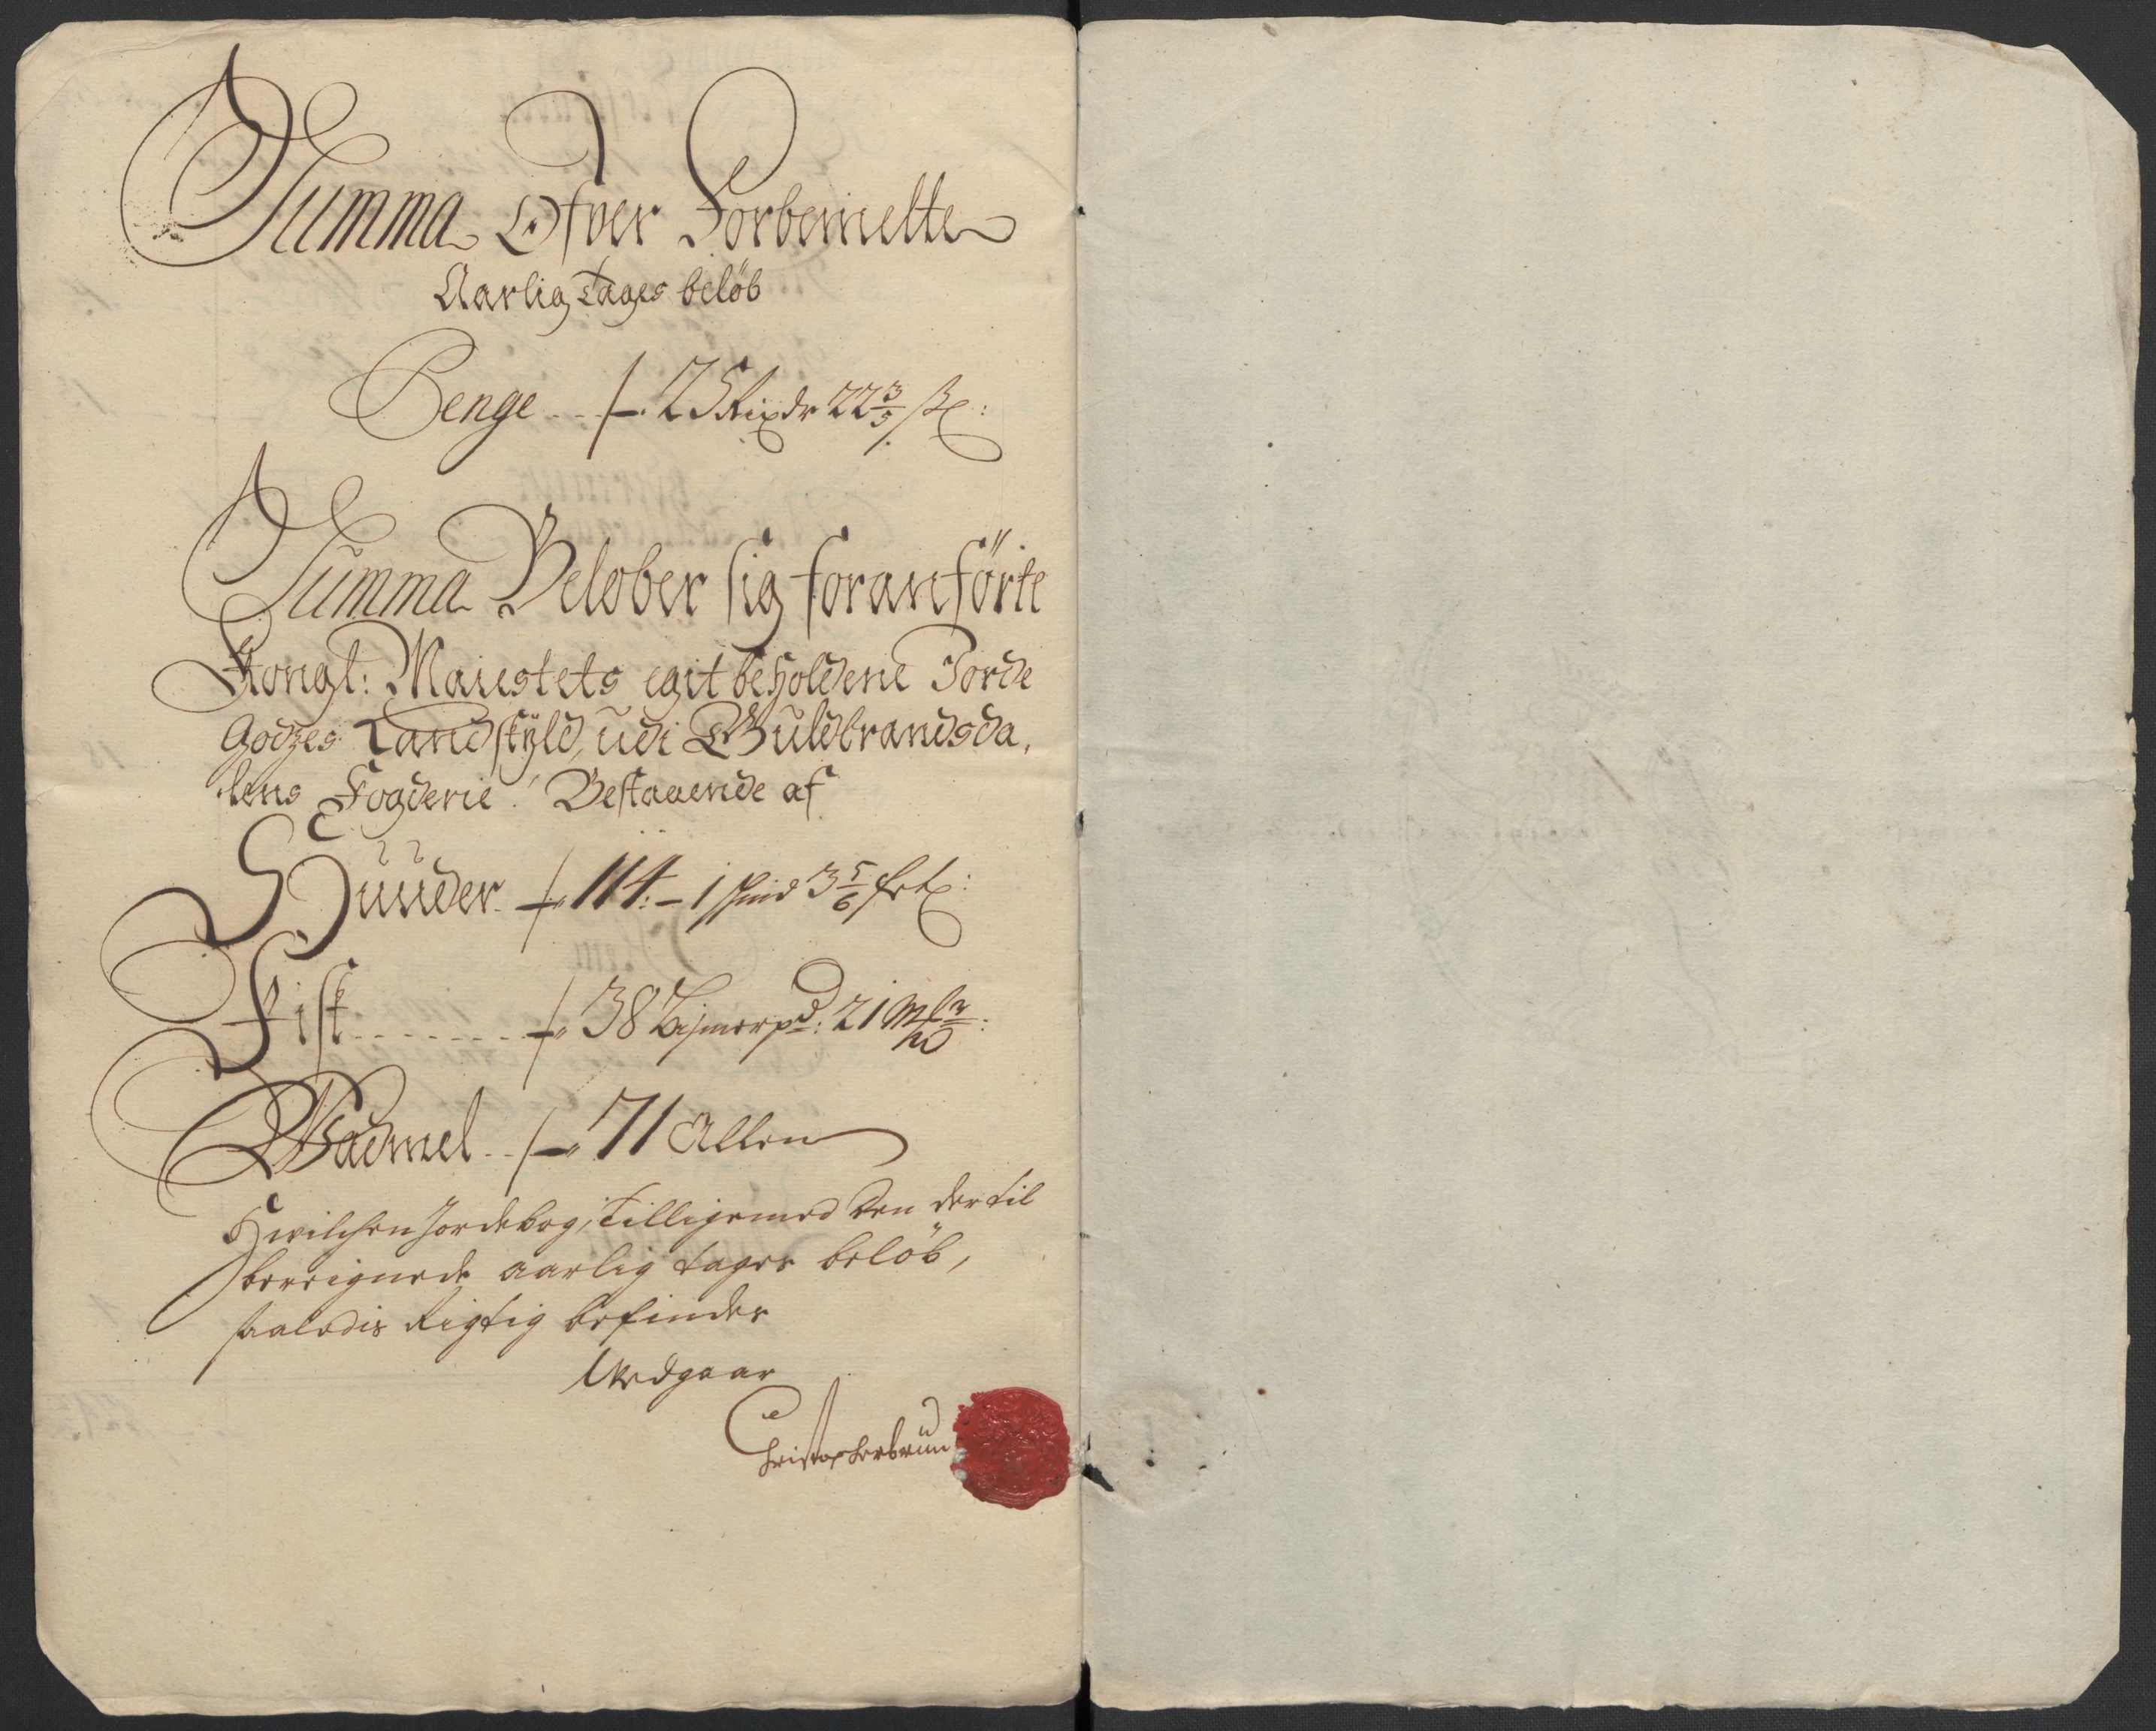 Summa Ofver Forbemelte
Aarlig tages beløb
Penge - - 25 Rixdr 22 3/5 ß:
Summa Beløber sig foranförte
Kongl: Maiestets egit beholdene Jorde
Godzes Landskÿld, udi Guldbrandsda,
lens Fogderie! Bestaaende af
Huuder - 114: - 1 skind 3 5/6
Fisk - - - - - - - 38 bismerpd: 21 Mk
Wadmel - - 71 Allen
Hwilchen Jordebog, tilligemed den dertil
bereignede aarlig tages belöb,
saaledis Rigtig befindes
Vedgaar
Christopher brun